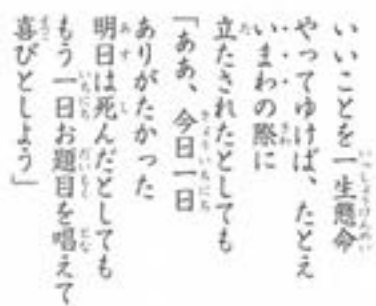 いいことを一生懸命
やってゆけば、たとえ
いまわの際に
立たされたとしても
「ああ、今日一日
ありがたかった
明日は死んだとしても
もう一日お題目を唱えて
喜びとしよう」